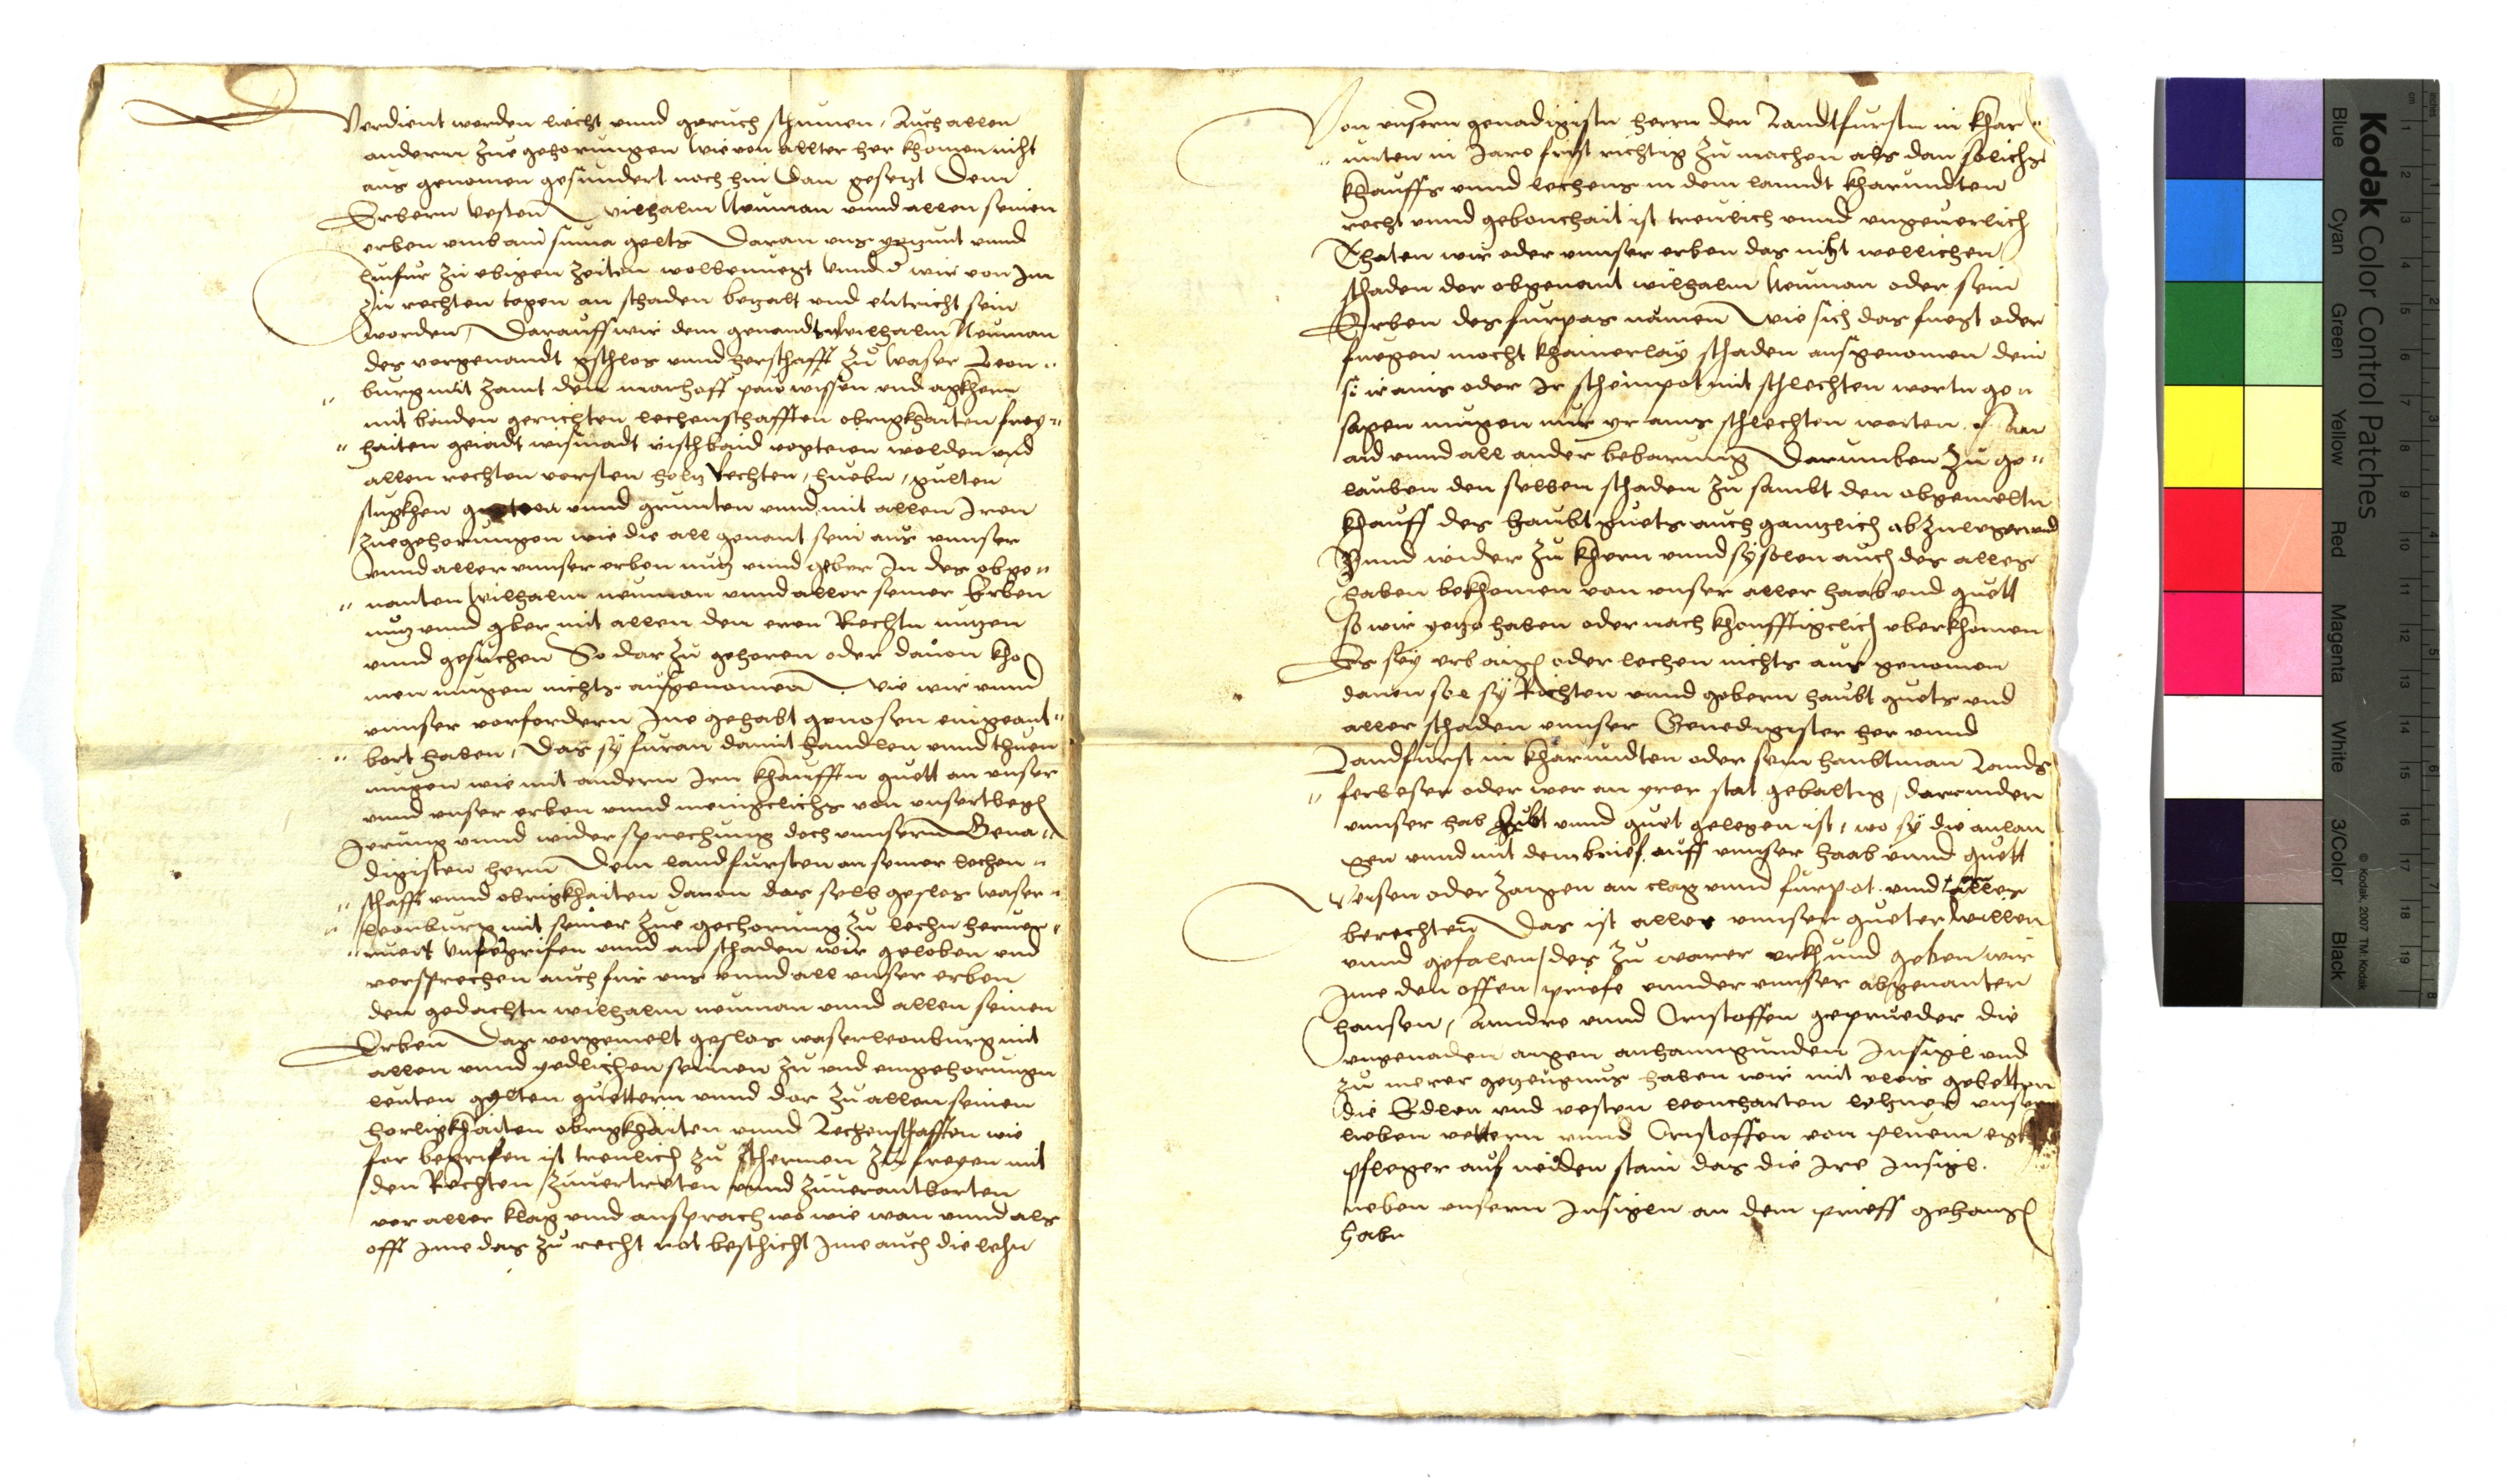 Verdient worden liecht vnnd geruch stumen, Auch allen
anderm zue gehorungen wie von allter her khomen nicht
aus genomen gesundert noch hin dan gesetzt Dem
Erbern vesten Wilhalm Neuman vnnd allen seinen
erben vmb ain suma gelts Daran vns yetzunt vnnd
hinfur zu ebigen zeiten wolbenuegt vnnd wir von Im
zu rechten tagen an schaden betzalt vnd entricht sein
worden, Darauff wir dem genandt Wilhalm Neuman
des vorgenandt gschlos vnnd herschafft zu Waser Leon„
„ burg mit zamt dem mairhoff paw wissen vnd agkhern
mit beiden gerichten lechenschafften obrigkhaiten frey„
„ haiten geiadt wismadt vischbaid vogteien welden vnd
allen rechten vorsten holtz vechten, hueben, gulten
stugkhen guetern vnnd grunten vnnd mit allen Iren
zuegehorungen wie die all genant sein aus vnnser
vnnd aller vnnser erben nutz vnnd geber In des obge„
„ nanten Wilhalm neuman vnnd aller seiner Erben
nutz vnnd geber mit allen den eren Rechtn nutzen
vnnd gesuchen So dar zu gehoren oder dauon kho
men mugen nichts ausgenomen wie wir vnnd
vnnser vorfordern Ine gehabt genosen eingeant„
„ bort haben, Das sy furan damit handlen vnnd thuen
mugen wie mit andern Irn khaufftn guett an vnser
vnnd vnser erben vnnd menigclichs von vnsertbegen
Irrung vnnd wider sprechung doch vnnserm Gena„
digisten hern Dem landfursten an seiner lechen„
„ schafft vnnd obrigkhaiten dauon das selb geslos waser„
„ leonburg mit seiner zue gehorung zu lechn herruer„
„ruert vnuergrifen vnnd an schaden wir geloben vnd
versprechen auch fur vns vnnd all vnser erben
den gedachtn wilhalm neuman vnnd allen seinen
Erben Das vorgemelt geslos waserleonburg mit
allen vnnd yedlichen seinen zu vnd eingehorungen
leuten gulten guettern vnnd dar zu allen seinen
herligkhaiten obrigkhaiten vnnd Lechenschafften wie
for begrifen ist treulich zu schermen zu freyen mit
den Rechten zuuertreten vnnd zuuerantborten
vor aller klag vnnd ansprach wo wie wan vnnd als
offt Ime das zu recht not beschicht Ime auch die lechn
Von vnsern genadigistn herrn den Landtfurstn in khar„
„ nnten in Jars frist richtig zu machen als dan solichs
khauffs vnnd lechens in dem lanndt kharundten
recht vnnd gebonhait ist treulich vnnd vngeuerlich
Thaten wir oder vnnser erben das nicht wellichen
schaden der obgenant wilhalm Neuman oder sein
Erben des furpas namen Wie sich das fuegt oder
fuegen mocht khainerlay schaden ausgenomen dem
si ir ains oder Ir scheinpot mit schlechten wortn ge„
sagen mugen nur yr ains schlechten worten an
aid vnnd all ander bebarung Darumben zu ge„
lauben den selben schaden zu sambt den obgemeltn
khauff des haubt guets auch gantzlich ab zulegen vnd
vnnd wider zu khern vnnd sy solen auch des alles
haben bekhomen von vnser aller haab vnd guett
So wir yetzo haben oder nach khonfftigclich vberkhomen
Es sey erb aigen oder lechen nichts aus genomen
dauon sol sy Richten vnnd gebern haubt guets vnd
aller schaden vnnser Genedigister her vnnd
Landfurst in kharundten oder sein haubtman Lands
„ ferbeser oder wer an yrer stat gebaltig, darinnder
vnnser hab vnnd guet gelegen ist, wo sy die anlan
gen vnnd mit dem brief auff vnnser haab vnnd guett
weisen oder zaigen an clag vnnd furpot vnnd alles
berechten Das ist aller vnnser gueter willen
vnnd gefalen, des zu warer vrkhund geben wir
Ime den offen priefe vnnder vnnser obgenanten
hansen, Anndre vnnd Cristoffen geprueder die
vngenaden aigen anhanngunden Insigl vnd
zu merer getzeugnus haben wir mit vleis gebetten
die Edlen vnd vesten leoncharten lechner vnsern
lieben vettern vnnd Cristoffen von
pfleger auf neiden stain das die Ire Insigl.
neben vnsern Insigln an dem prieff gehangen
habn